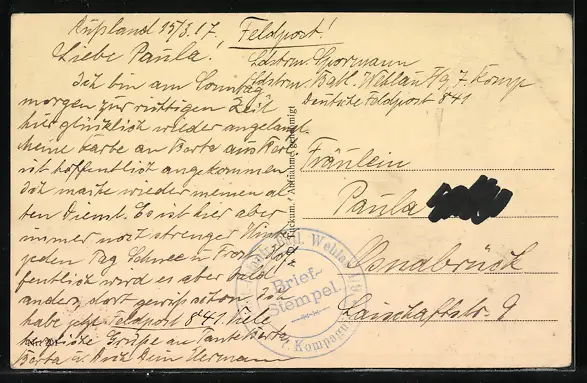 Rußland 25/3.17.
Feldpost!
Liebe Paula!
Ich bin am Sonntag
morgen zur richtigen Zeit
hier glücklich wieder angeland.
meine Karte an Berta aus
ist hoffentlich angekommen
Ich mache wieder meinen al-
ten Dienst. Es ist hier aber
immer noch strenger Winter
jeden Tag Schnee u Frost. Hof-
fentlich wird es aber bald
anders, dort gewiß schon. Ich
habe jetzt Feldpost 841. Viele
herzliche Grüße an Tante Berta
Dein Hermann
Ldstrm.
Ldstrm. Batl. Wehlau 7. Komp
Deutsche Feldpost 841
Fräulein
Paula
Osnabrück
9
Aufnahme genehmigt
Wehlau
Brief-
Stempel
Kompagnie